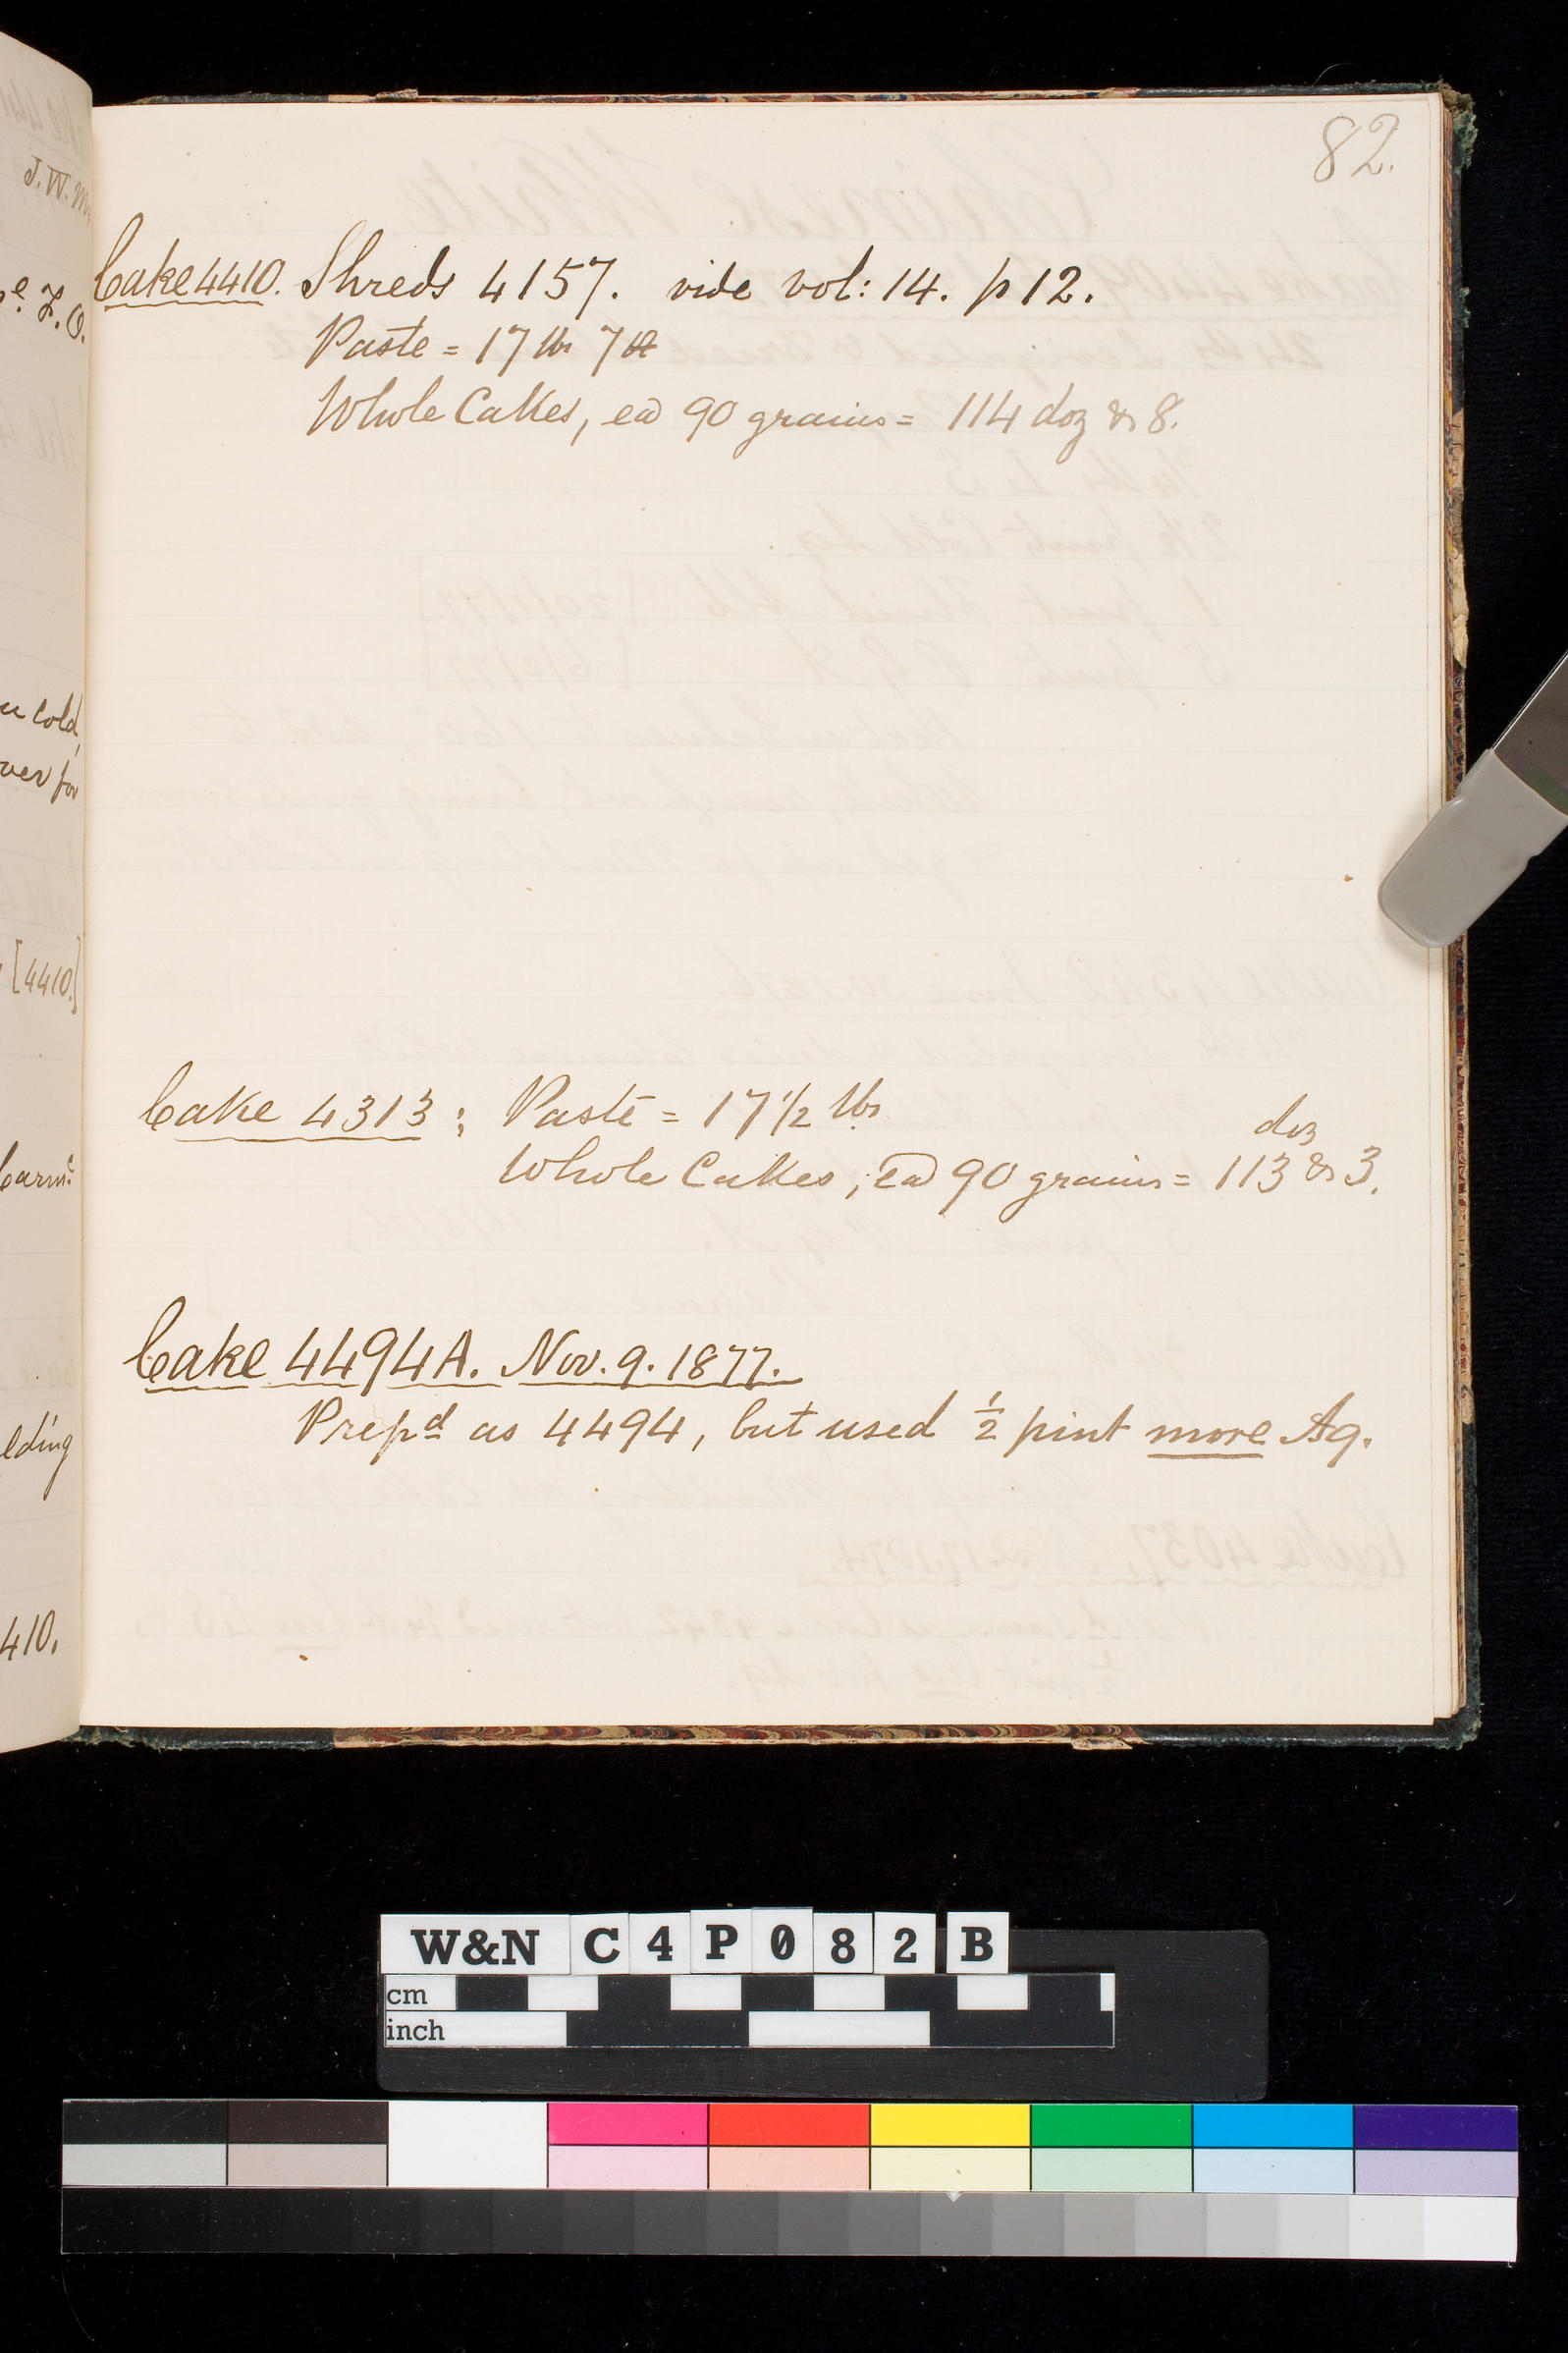 82.
J. W.
Cake 4410. Shreds 4157. vide vol: 14. p 12.
Paste = 17 lbs 7
Whole Cakes, ea 90 grains = 114 doz & 8.
cold,
over for
[4410.]
Cake 4313; Paste = 17 1/2 lbs
doz
Whole Cakes, ea 90 grains = 113 & 3.
Cake 4494A. Nov. 9. 1877.
Prepd as 4494, but used 1/2 pint more Aq.
lding
410.
W&N C4P082B
cm
inch